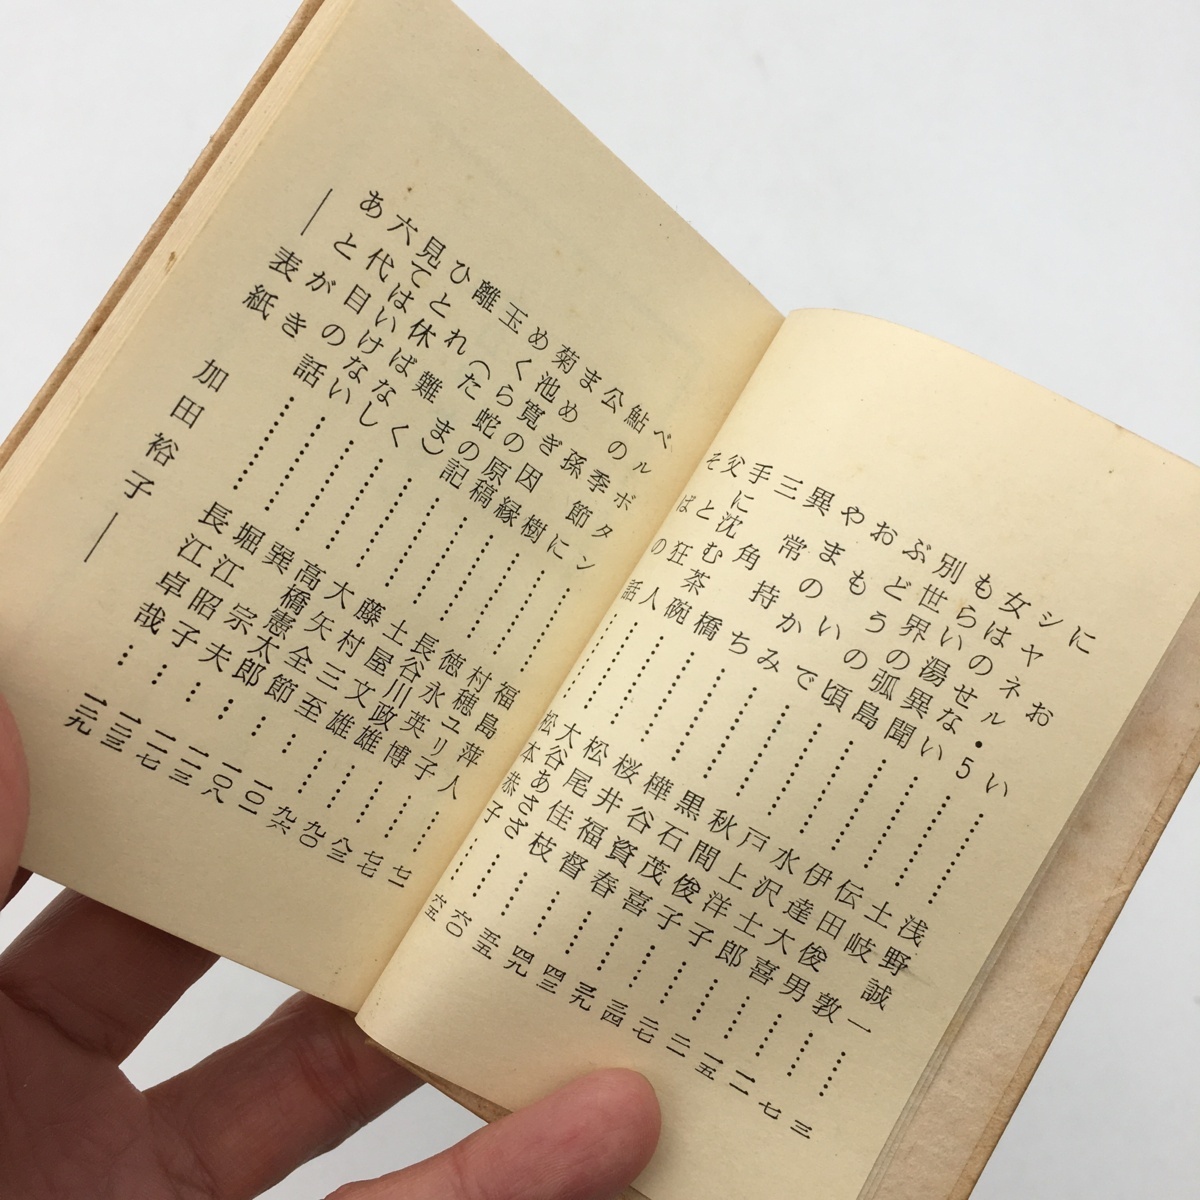 におい………浅野誠一…三
シャネル・5………土岐敦…七
女はのせない………伝田俊男…一一
もらい湯異聞………伊達大喜…一五
別世界の弧島………水沢士郎…二二
ぶどうの頃………戸上洋子…二七
おもいで………秋間俊子…三四
やまのかみ………黒石茂喜…三九
異常持ち………樺谷資春…四三
三角橋………桜井福督…四九
手に沈む茶碗………松尾佳枝…五五
父と狂人………大谷あさざ…六〇
そばの話………松本恭子…六五
ベルボタン………福島萍人…七一
鮎の季節に………村穂ユリ子…七七
公孫樹………徳永英博…八三
まめぎ因縁………長谷川政雄…九〇
菊池寛の原稿………土屋文雄…九六
めくら蛇の記………藤村三至…一〇二
玉（たま）………大矢全節…一〇八
離れ難く………高橋憲太郎…一一三
ひと休ばなし………巽宗夫…一一七
見てはいけない………堀江昭子…一二三
六代目の話………長江卓哉…一二九
あとがき
―表紙 加田裕子―